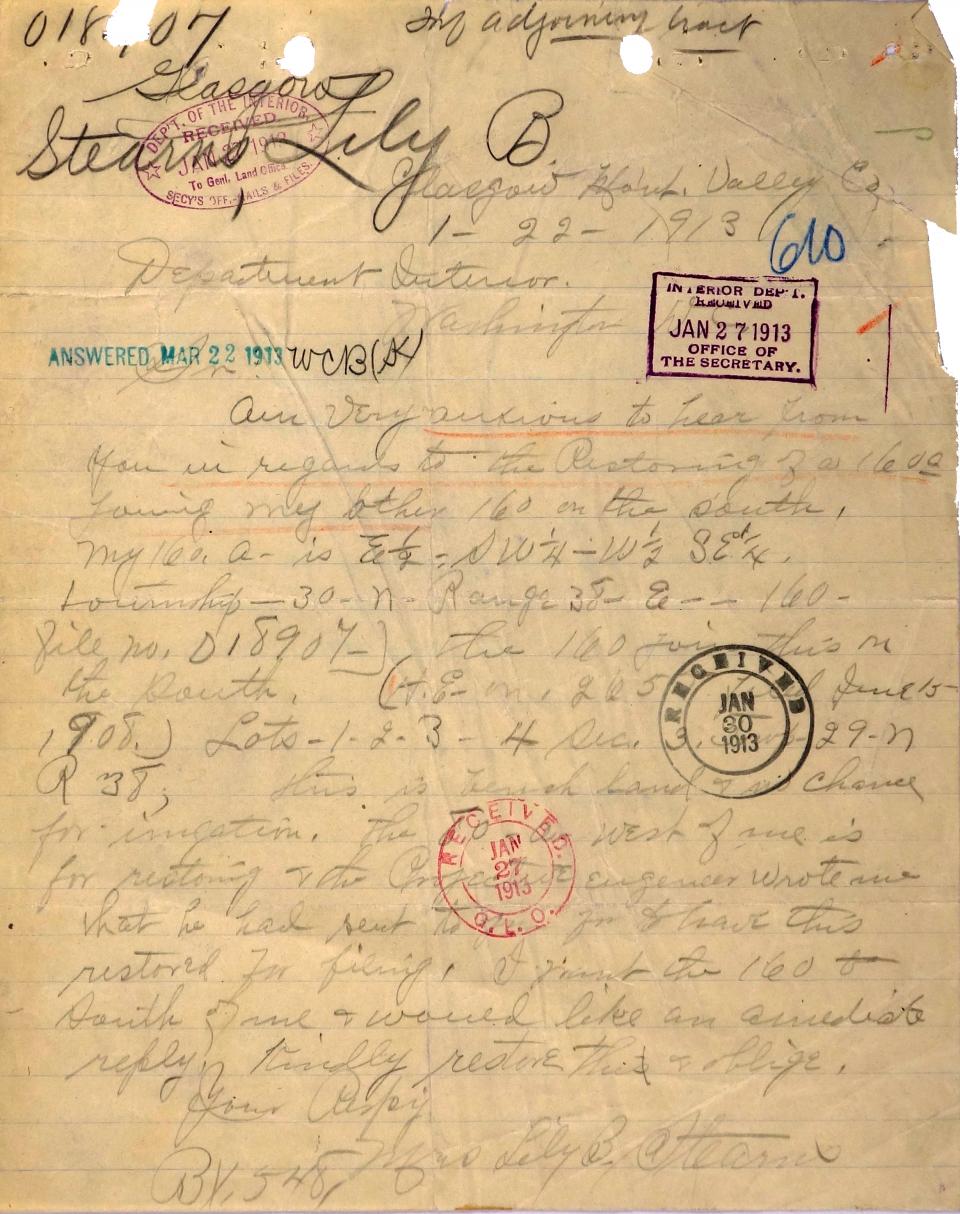 018907
Inf adjoining tract
Glasgow
Stearns, Lily B.
DEP'T. OF THE INTERIOR.
RECEIVED
JAN 27 1913
To Genl. Land Office
SECY'S OFF.-MAILS & FILES.
Glasgow Mont. Valley Co,
1- 22- 1913
610
Department Interior.
Washington
INTERIOR DEP'T.
RECEIVED
JAN 27 1913
OFFICE OF
THE SECRETARY.
ANSWERED MAR 22 1913 WCB
Am Very anxious to hear from
you in regards to the Restoring of a 160 a
Joining my other 160 on the south,
my 160. a- is E½- SW¼-W½ SE¼.
township-30-N- Range 38- E-- 160-
file no. 018907-) the 160 join this on
the South. (H.E- 265 June 15-
1908.) Lots-1-2-3-4 Sec. 29-N
R 38, this is bench land & no chance
for irrigation. the west of me is
for restoring & the engeneer wrote me
that he had sent to have this
restored for filing. I want the 160
South of me & would like an amediate
reply, Kindly restore this & oblige.
Your Respy
Mrs Lily B. Stearns
BX. 548,
RECEIVED
JAN
30
1913
RECEIVED
JAN
27
1913
G.L.O.